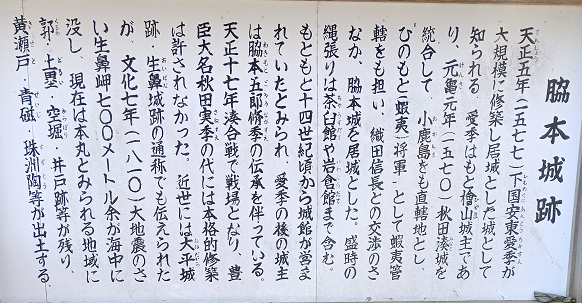 脇本城跡
天正五年(一五七七)下国安東愛季が
大規模に修築し居城とした城として
知られる。愛季はもと檜山城主であ
り、元亀元年(一五七〇)秋田湊城を
統合して、小鹿島をも直轄地とし、
ひのもと(蝦夷)将軍」として蝦夷管
轄をも担い、織田信長との交渉のさ
なか、脇本城を居城とした。盛時の
縄張りは茶臼館や岩倉館まで含む。
もともと十四世紀頃から城館が営ま
れていたとみられ、愛季の後の城主
は脇本五郎脩季の伝承を伴っている。
天正十七年湊合戦で戦場となり、豊
臣大名秋田実季の代には本格的修築
は許されなかった。近世には太平城
跡・生鼻城跡の通称でも伝えられた
が、文化七年(一八一〇)大地震のさ
い生鼻岬七〇〇メートル余が海中に
没し、現在は本丸とみられる地域に
郭・土塁・空堀・井戸跡等が残り、
黄瀬戸・青磁・珠洲陶等が出土する。